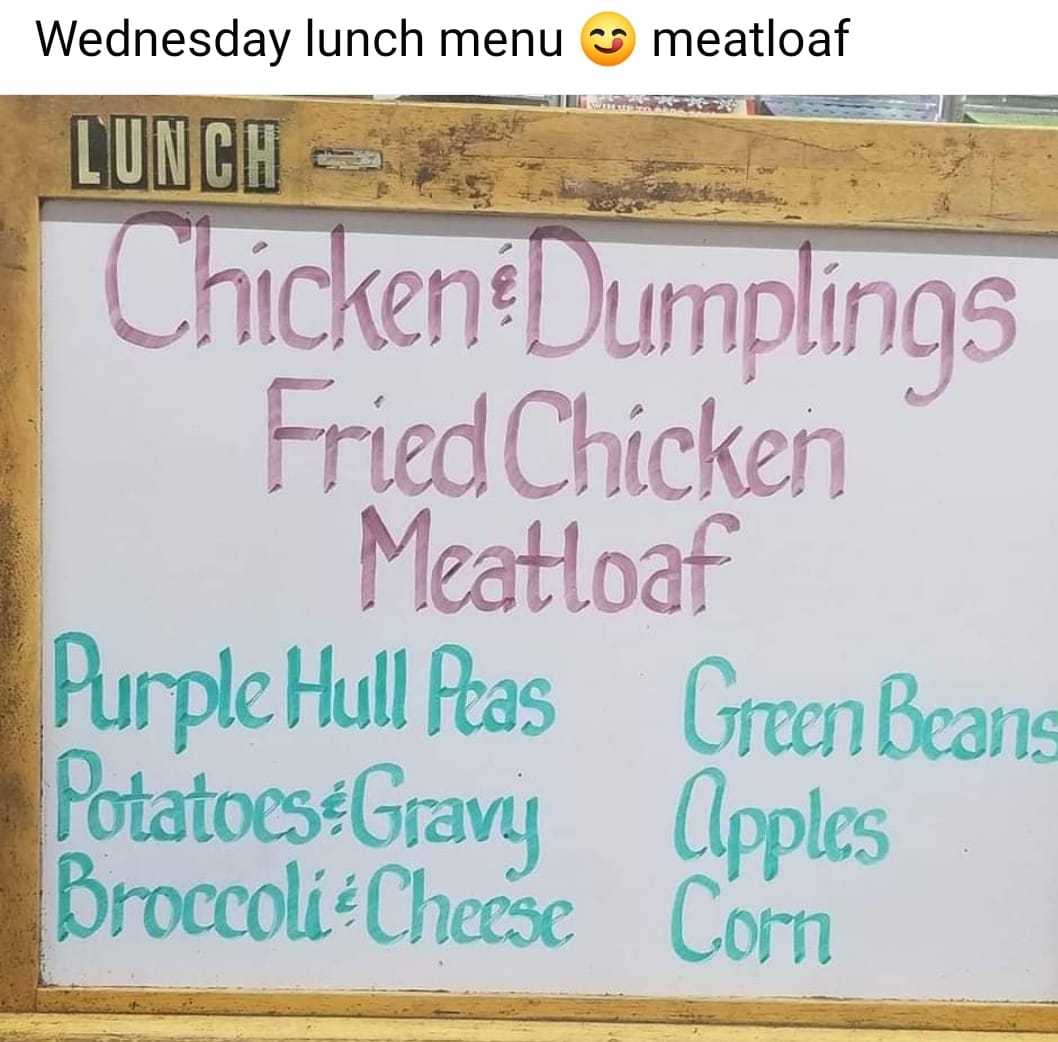 Wednesday lunch menu 😋 meatloaf
LUNCH
Chicken & Dumplings
Fried Chicken
Meatloaf
Purple Hull Peas
Green Beans
Potatoes & Gravy
Apples
Broccoli & Cheese
Corn